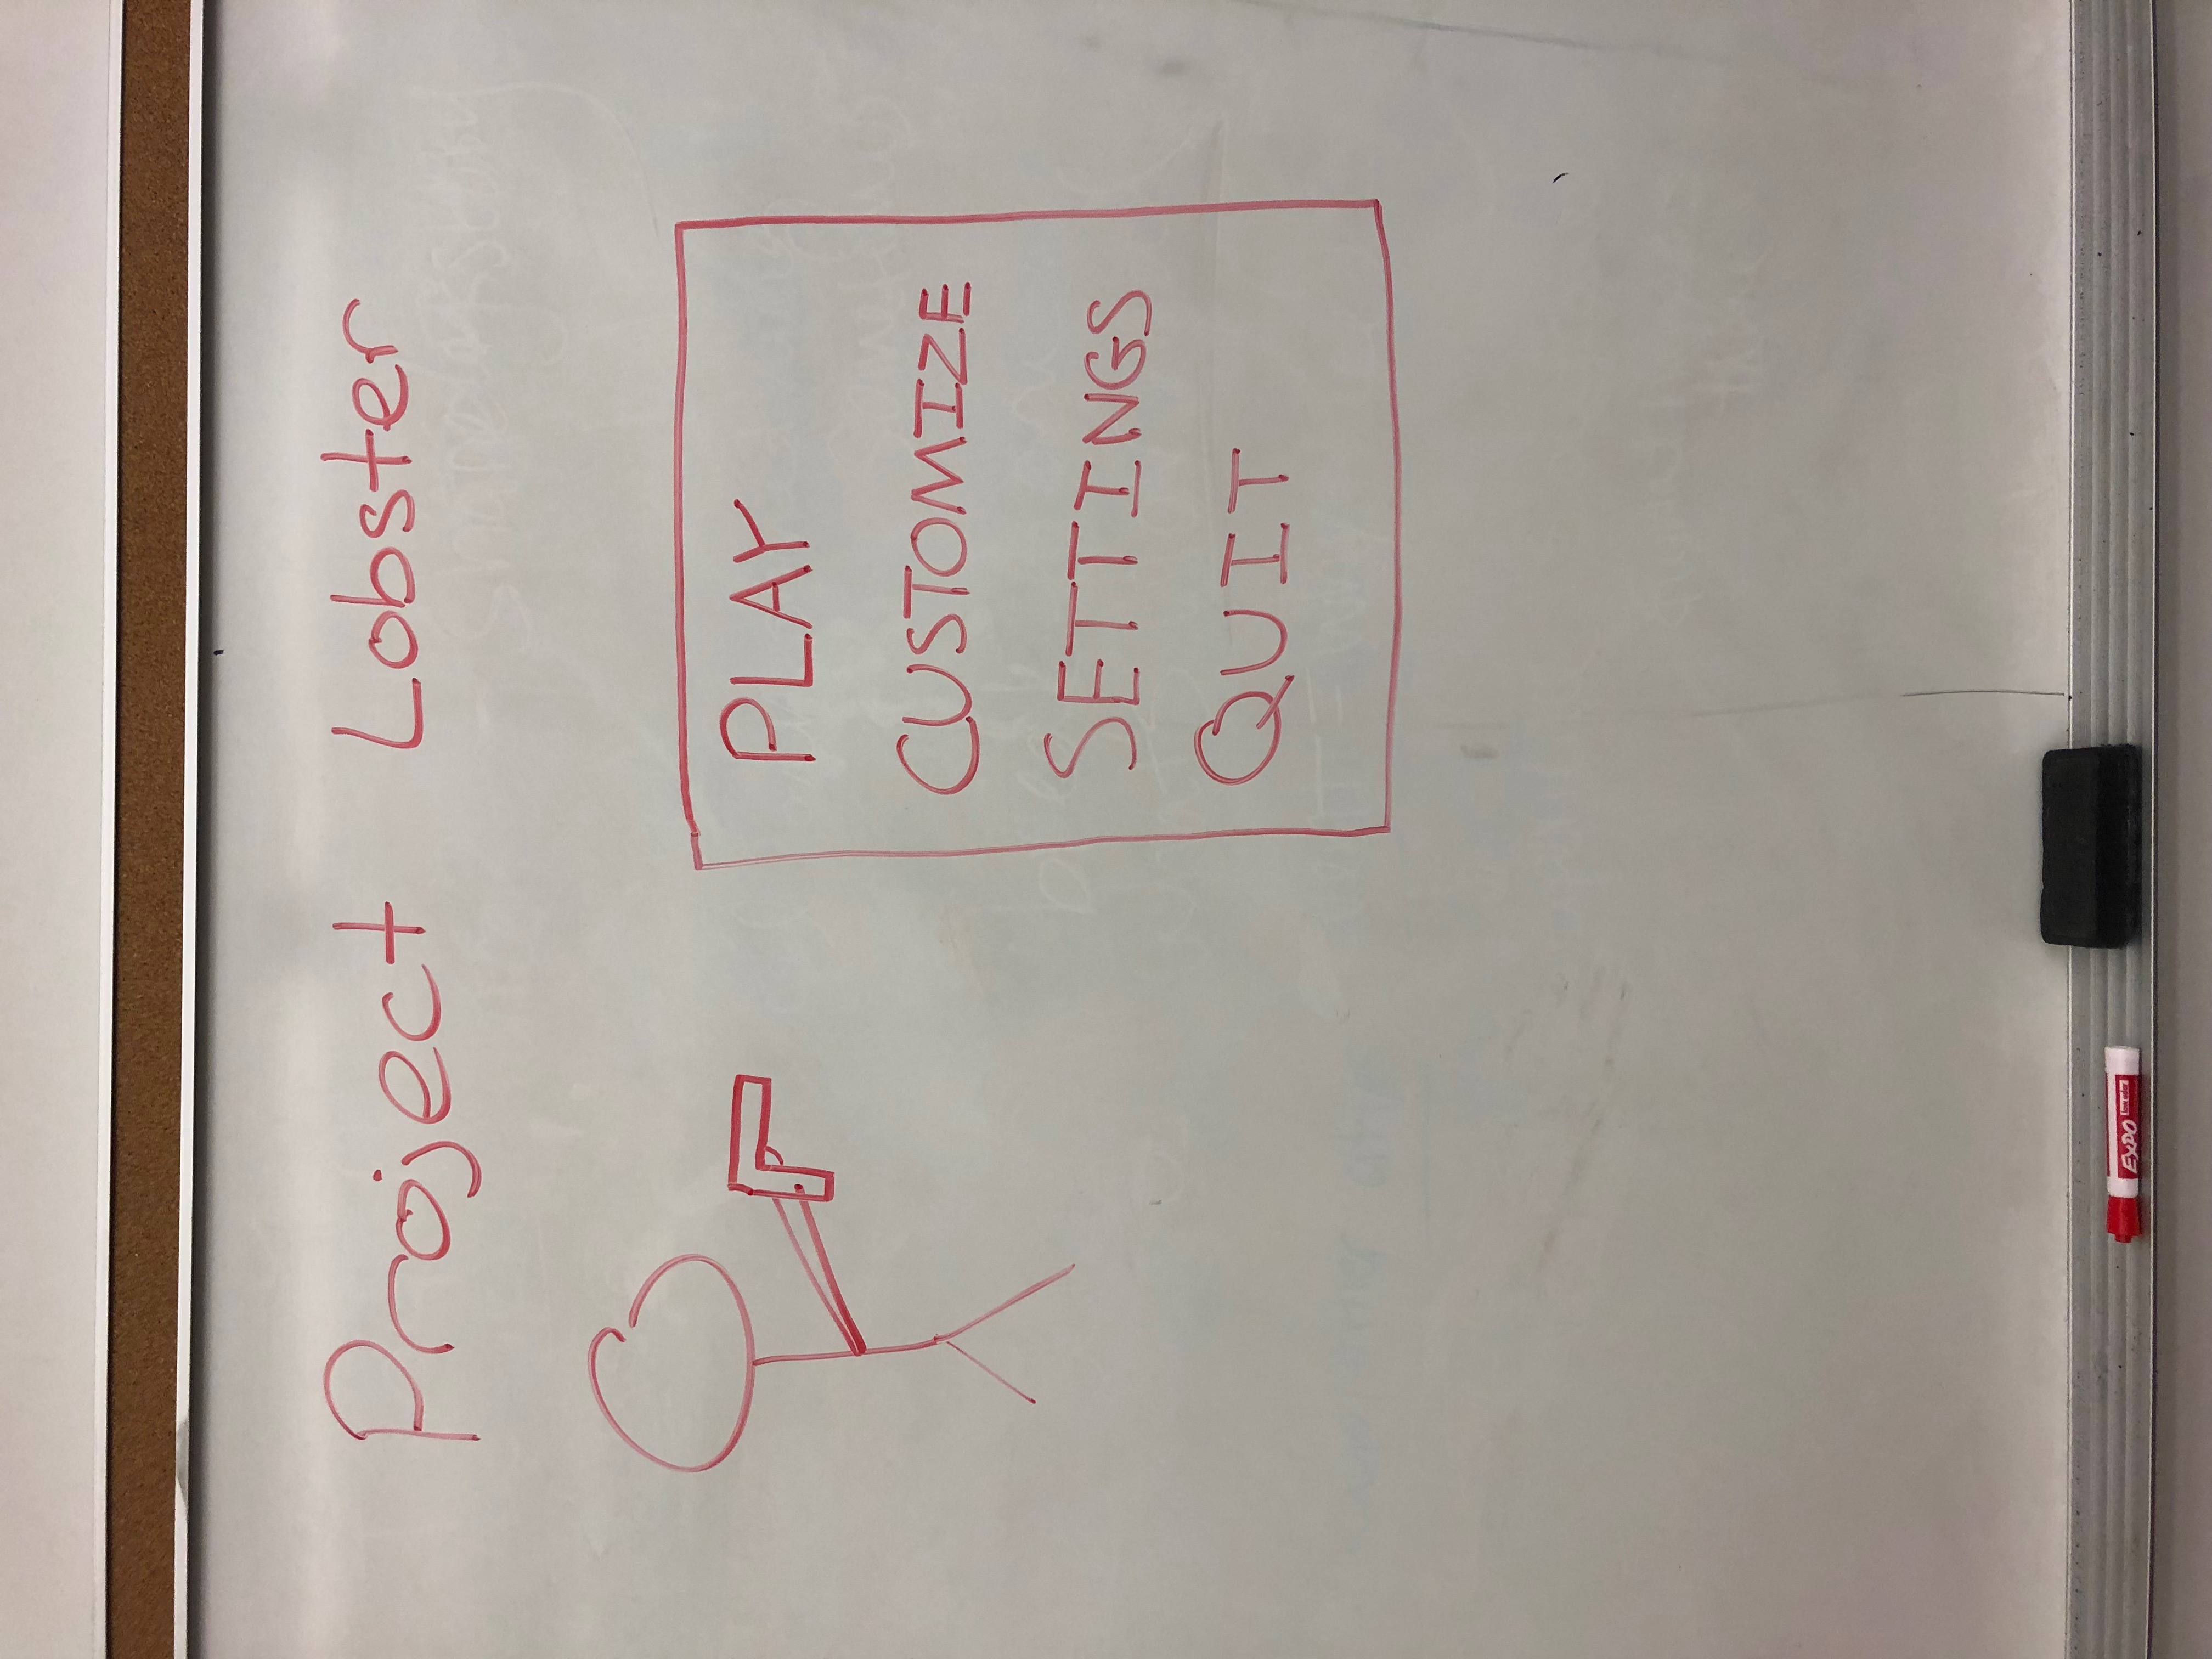 Project Lobster
PLAY
CUSTOMIZE
SETTINGS
QUIT
EXPO